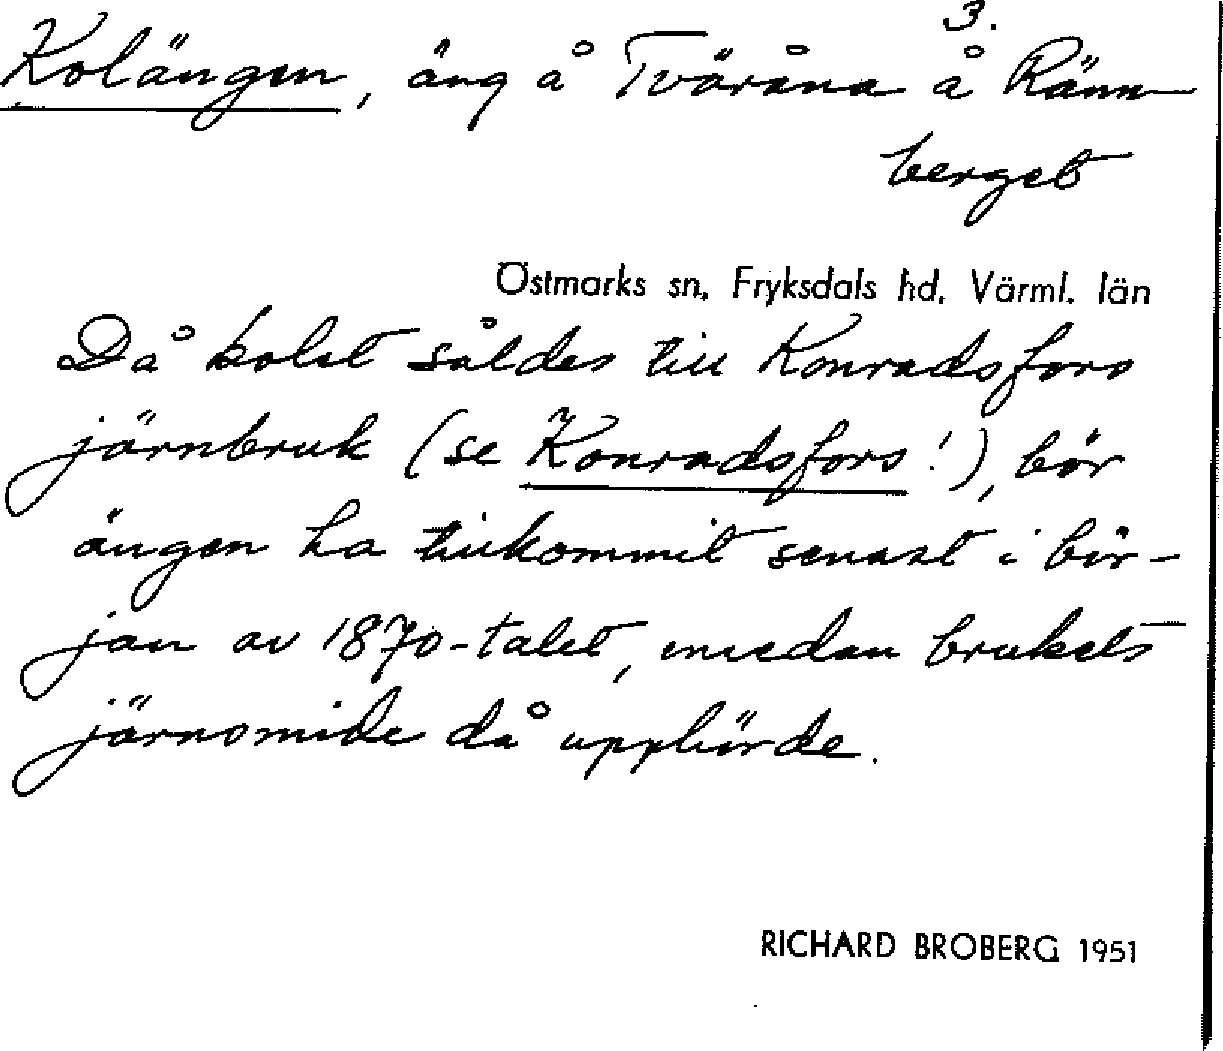 3.
Kolängen, äng å Tväråna å Ränn
berget
Östmarks sn, Fryksdals hd, Värml. län
Då kolet såldes till Konradsfors
järnbruk (se Konradsfors!), bör
ängen ha tillkommit senast i bör-
jan av 1870-talet, medan brukets
järnsmide då upphörde.
RICHARD BROBERG 1951